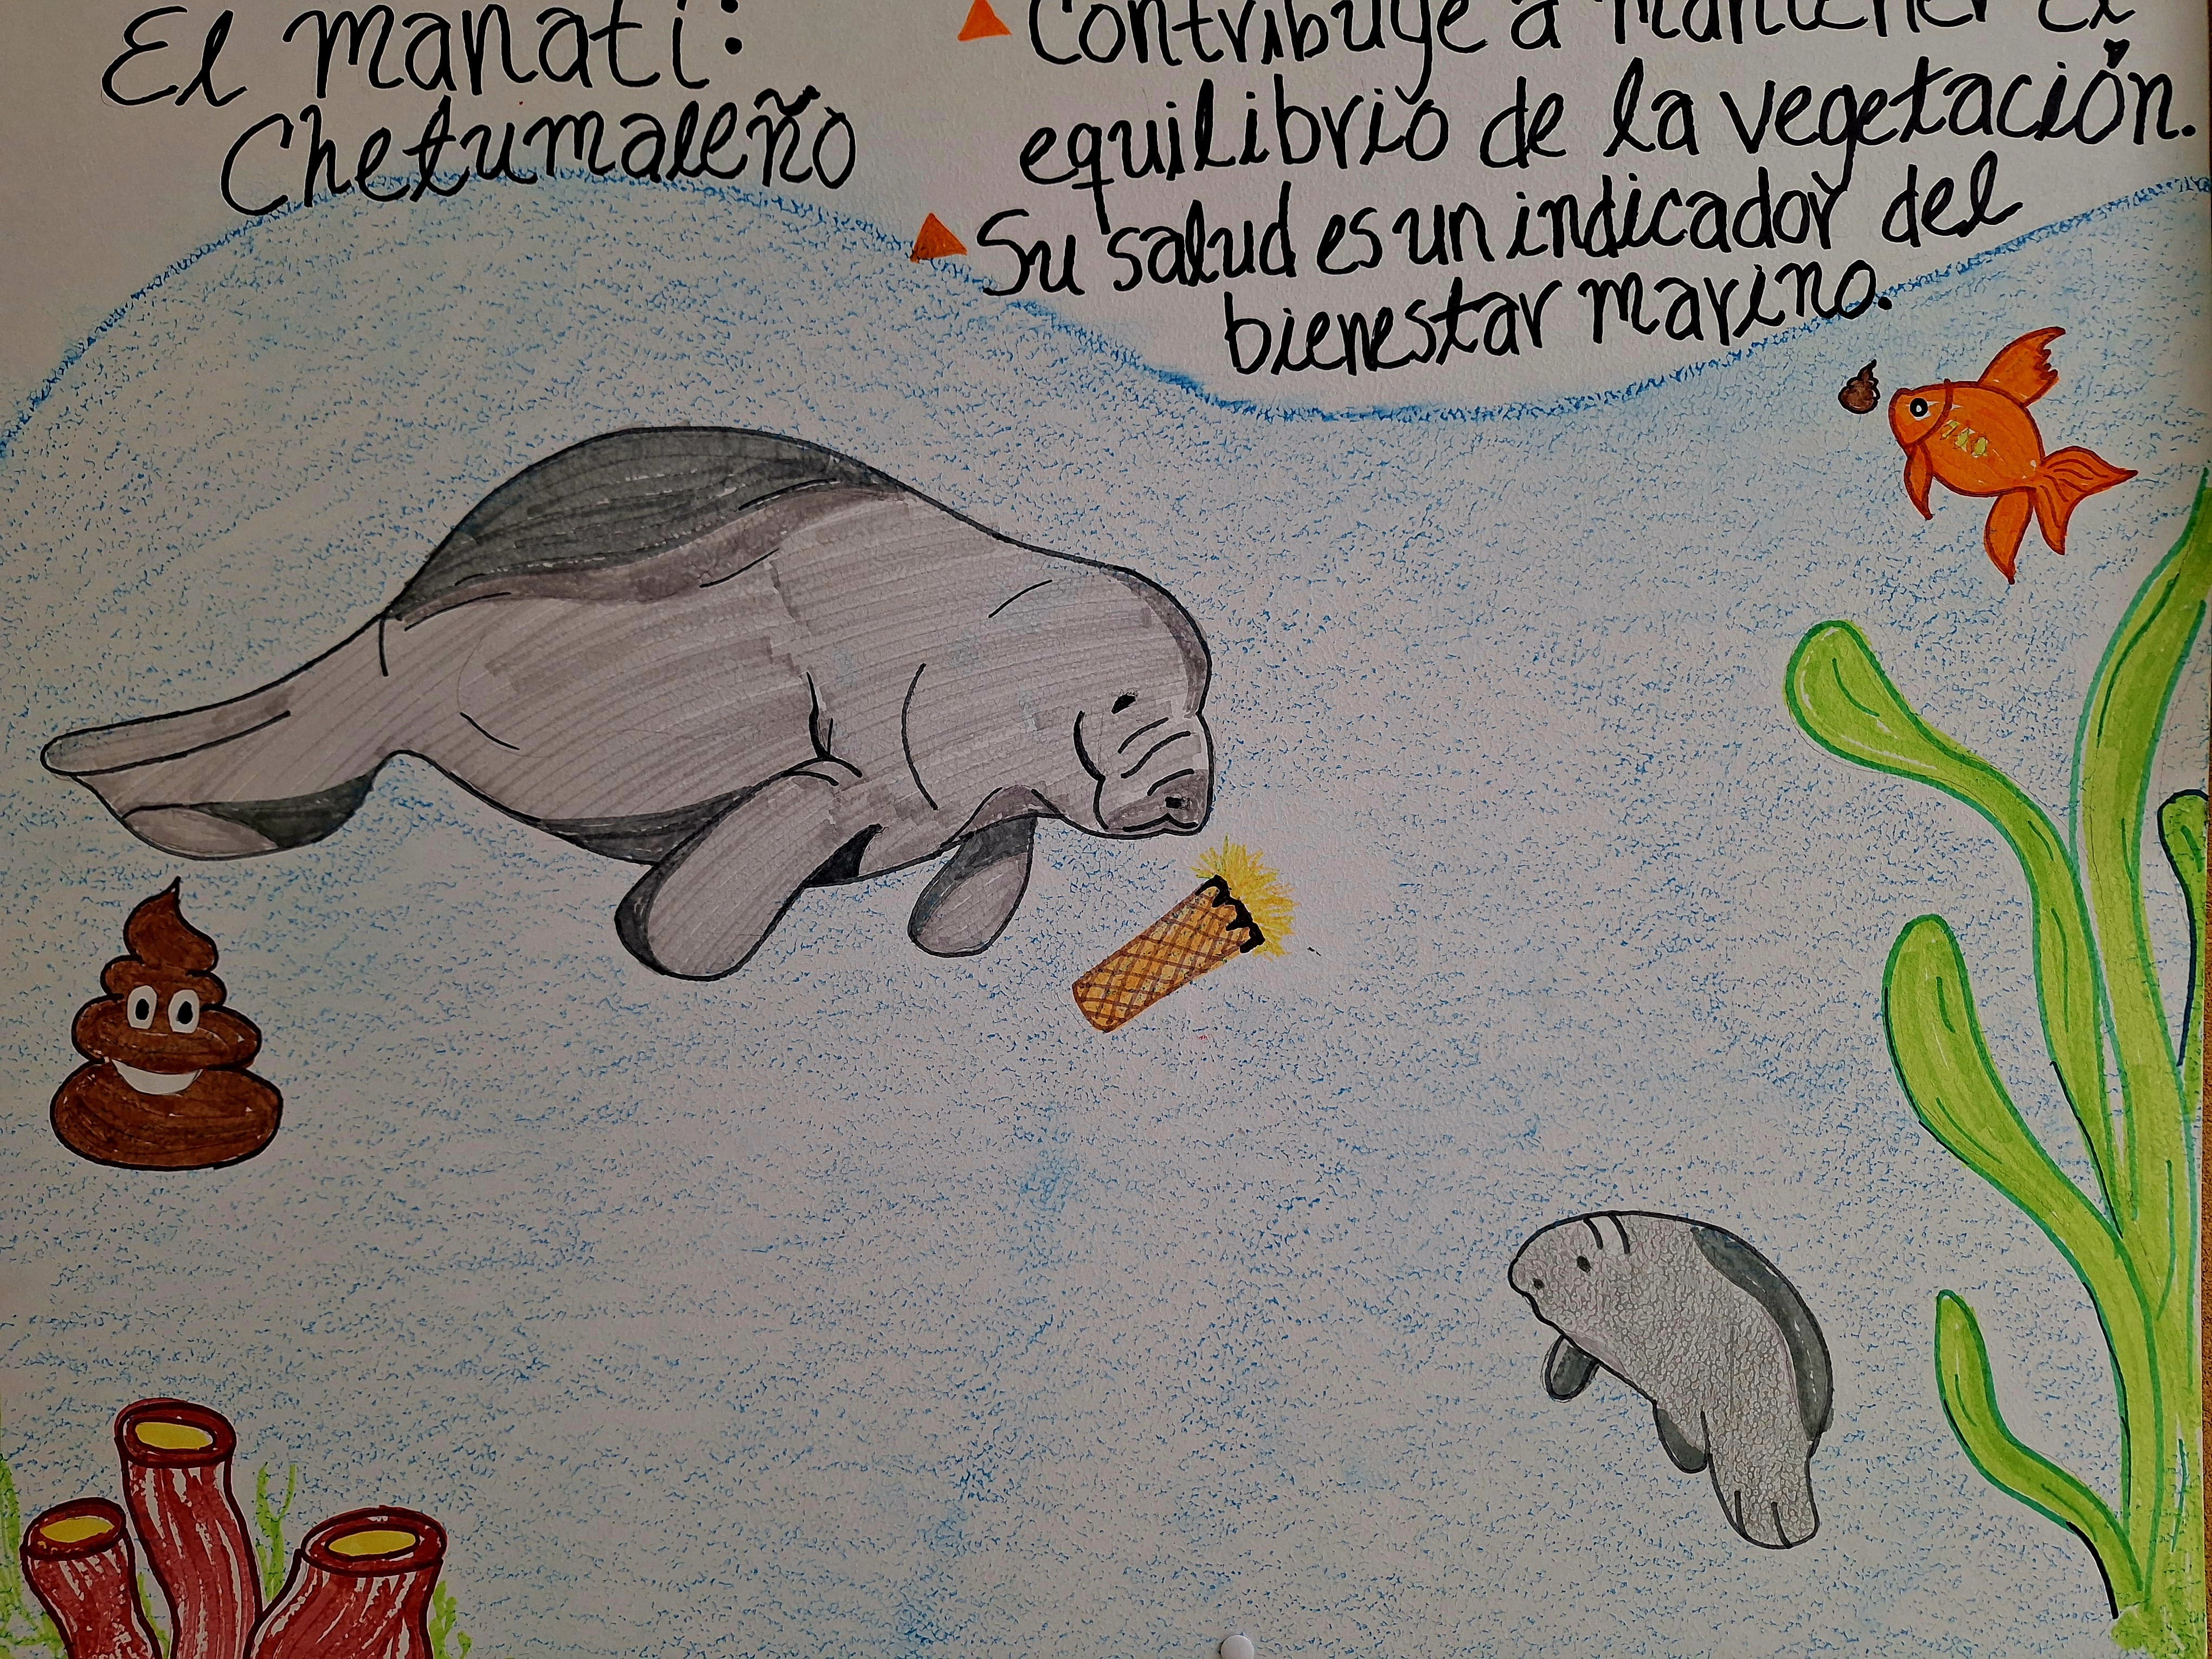 El manatí:
Chetumaleño
Contribuye a mantener el
equilibrio de la vegetación.
Su salud es un indicador del
bienestar marino.